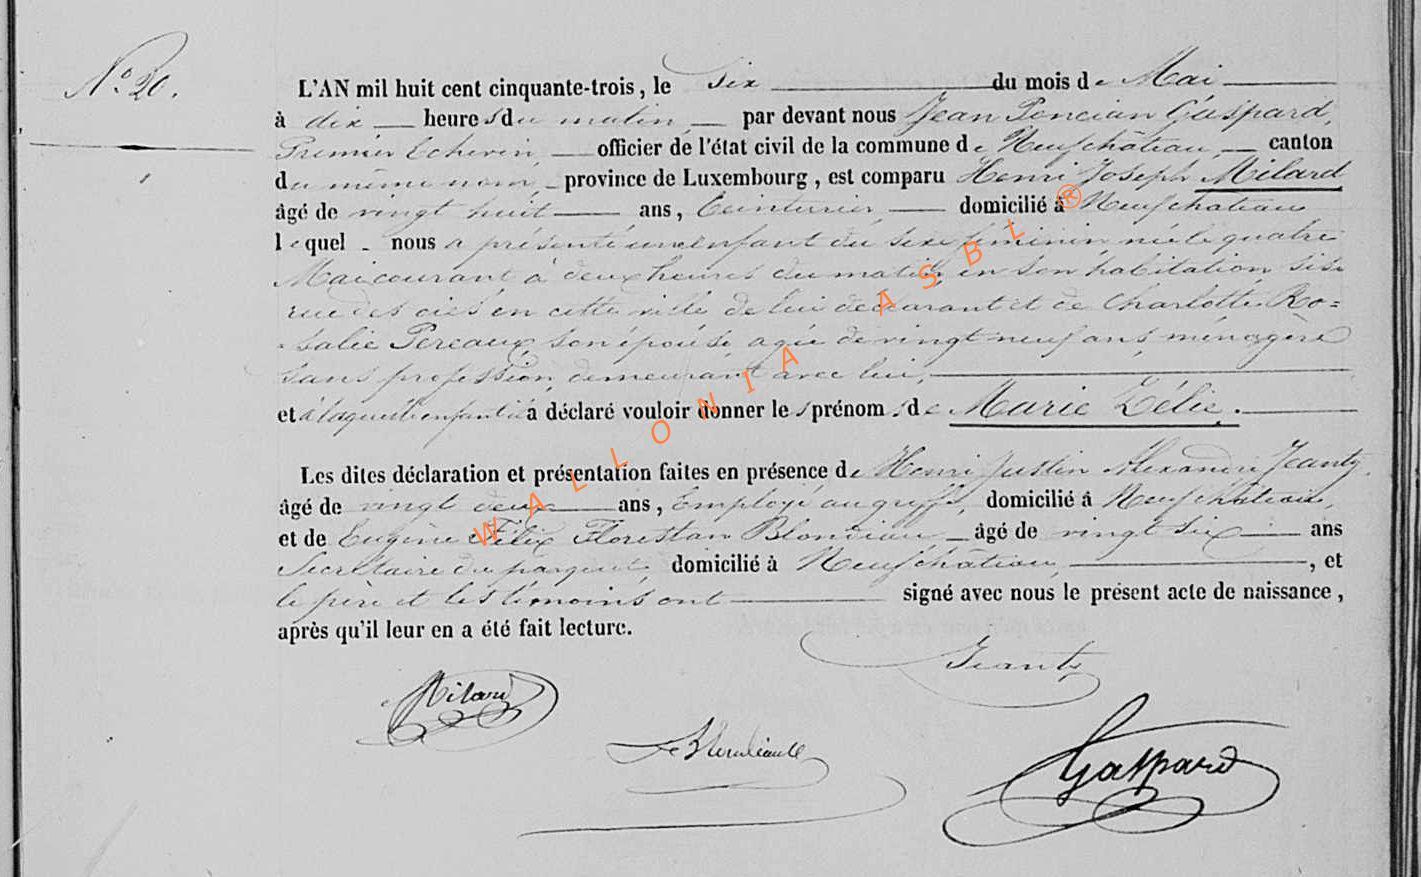 N.° 20.
L'AN mil huit cent cinquante-trois, le six du mois de Mai
à dix heures du matin, par devant nous Jean Poncian Gaspard,
Premier Echevin, officier de l'état civil de la commune de Neufchâteau, canton
du même nom, province de Luxembourg, est comparu Henri Joseph Milard
âgé de vingt huit ans, Ceinturier, domicilié à Neufchateau
lequel nous a présenté un enfant du sexe féminin né le quatre
Mai courant à deux heures du matin, en son habitation sise
rue des en cette ville de lui déclarant et de Charlotte Ro=
=salie Pereaux, son épouse agée de vingt neuf ans, ménagère
sans profession, demeurant avec lui,
et à laquelle enfant il a déclaré vouloir donner les prénoms de Marie Zélie.
Les dites déclaration et présentation faites en présence de Henri Justin Alexandre Jeanty,
âgé de vingt deux ans, Employé au greffe, domicilié à Neufchâteau,
et de Eugène Félix Florestan Blondiau âgé de vingt six ans
Secrétaire du parquet, domicilié à Neufchâteau, , et
le père et les témoins ont signé avec nous le présent acte de naissance,
après qu'il leur en a été fait lecture.
Jeanty
Milard
Gaspard
WALLONIA ASBL ®